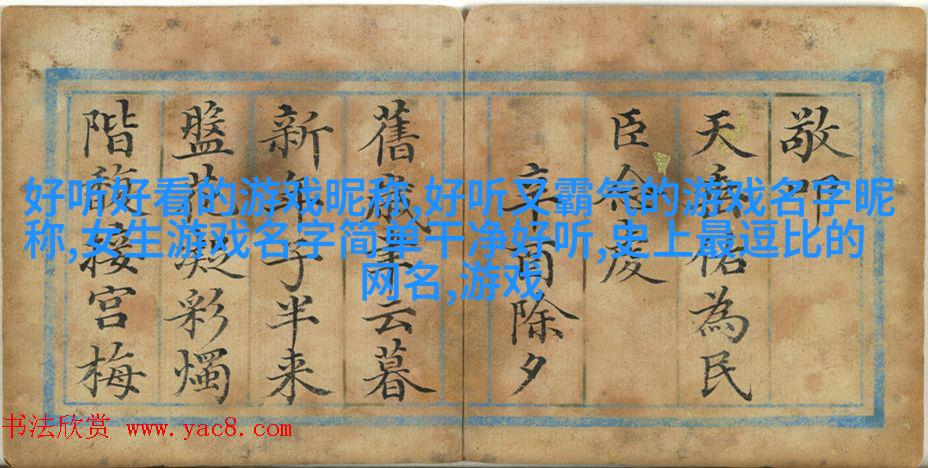 敬叩
天祐為民
臣
辛酉除夕
舊歲聿云暮
新年子半来
盤花凝彩燭
階馥接宮梅
好听好看的游戏昵称,好听又霸气的游戏名字昵
称,女生游戏名字简单干净好听,史上最逗比的
网名,游戏
书法欣赏 www.yac8.com